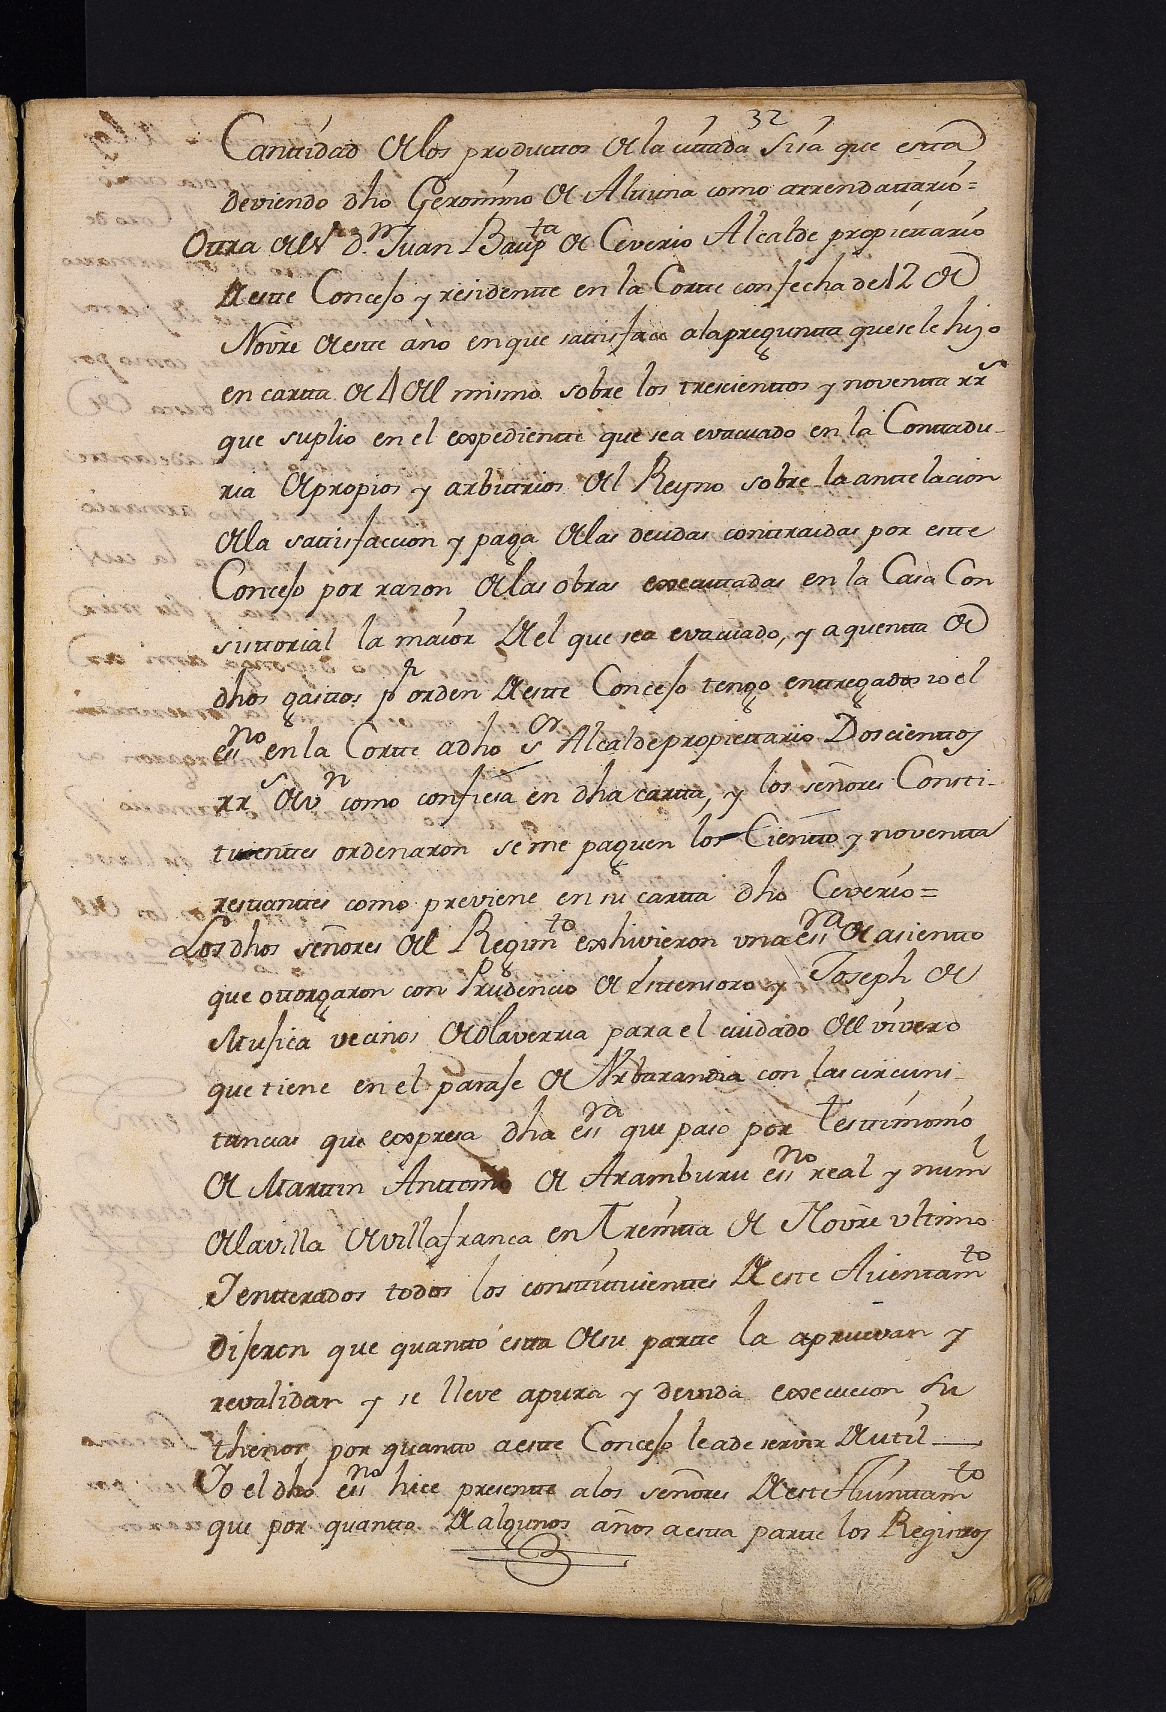 32
Canttidad de los producttos de la cittada Sisa que estta
deviendo dho Geronimo de Altuna como arrendattario =
Ottra del Sr dn Juan Bauptta de Ceverio Alcalde propiettario
de estte Consejo y residentte en la Cortte con fecha de 12 de
Novre de este año en que sattisface ala preguntta que se le hizo
en cartta de 4 del mismo sobre los trescienttos y noventta rrs
que suplio en el expedientte que sea evacuado en la Conttadu-
ria de propios y arbittrios del Reyno sobre la anttelacion
de la sattisfaccion y paga de las deudas conttraidas por estte
Consejo por razon de las obras executtadas en la Casa Con
sisttorial la maior de el que sea evacuado, y a quentta de
dhos gasttos pr orden de estte Consejo tengo enttregados io el
essno en la Cortte a dho sor Alcalde propiettario Doscienttos
rrs de vn como confiesa en dha cartta, y los señores Consti-
tuienttes ordenaron se me paguen los Cientto y noventta
resttanttes como previene en su cartta dho Ceverio =
Los dhos señores del Regimto exhivieron vna essra de asientto
que ottorgaron con Prudencio de Insttensoro y Joseph de
Mujica vecinos de Olaverria para el cuidado del vivero
que tiene en el paraje de Vrbarandia con las circuns-
tancias que expresa dha essra que paso por Testtimonio
de Marttin Anttonio de Aramburu essno real y numl
de la villa de villafranca en Treintta de Novre vltimo
I entterados todos los consttittuienttes de este Aiuntamto
dijeron que quantto estta de su partte la apruevan y
revalidan y se lleve a pura y devida execucion su
thenor por quantto a estte Consejo le a de servir de util —
Io el dho essno hice presentte a los señores de este Aiunttamto
que por quantto de algunos años a estta partte los Registros